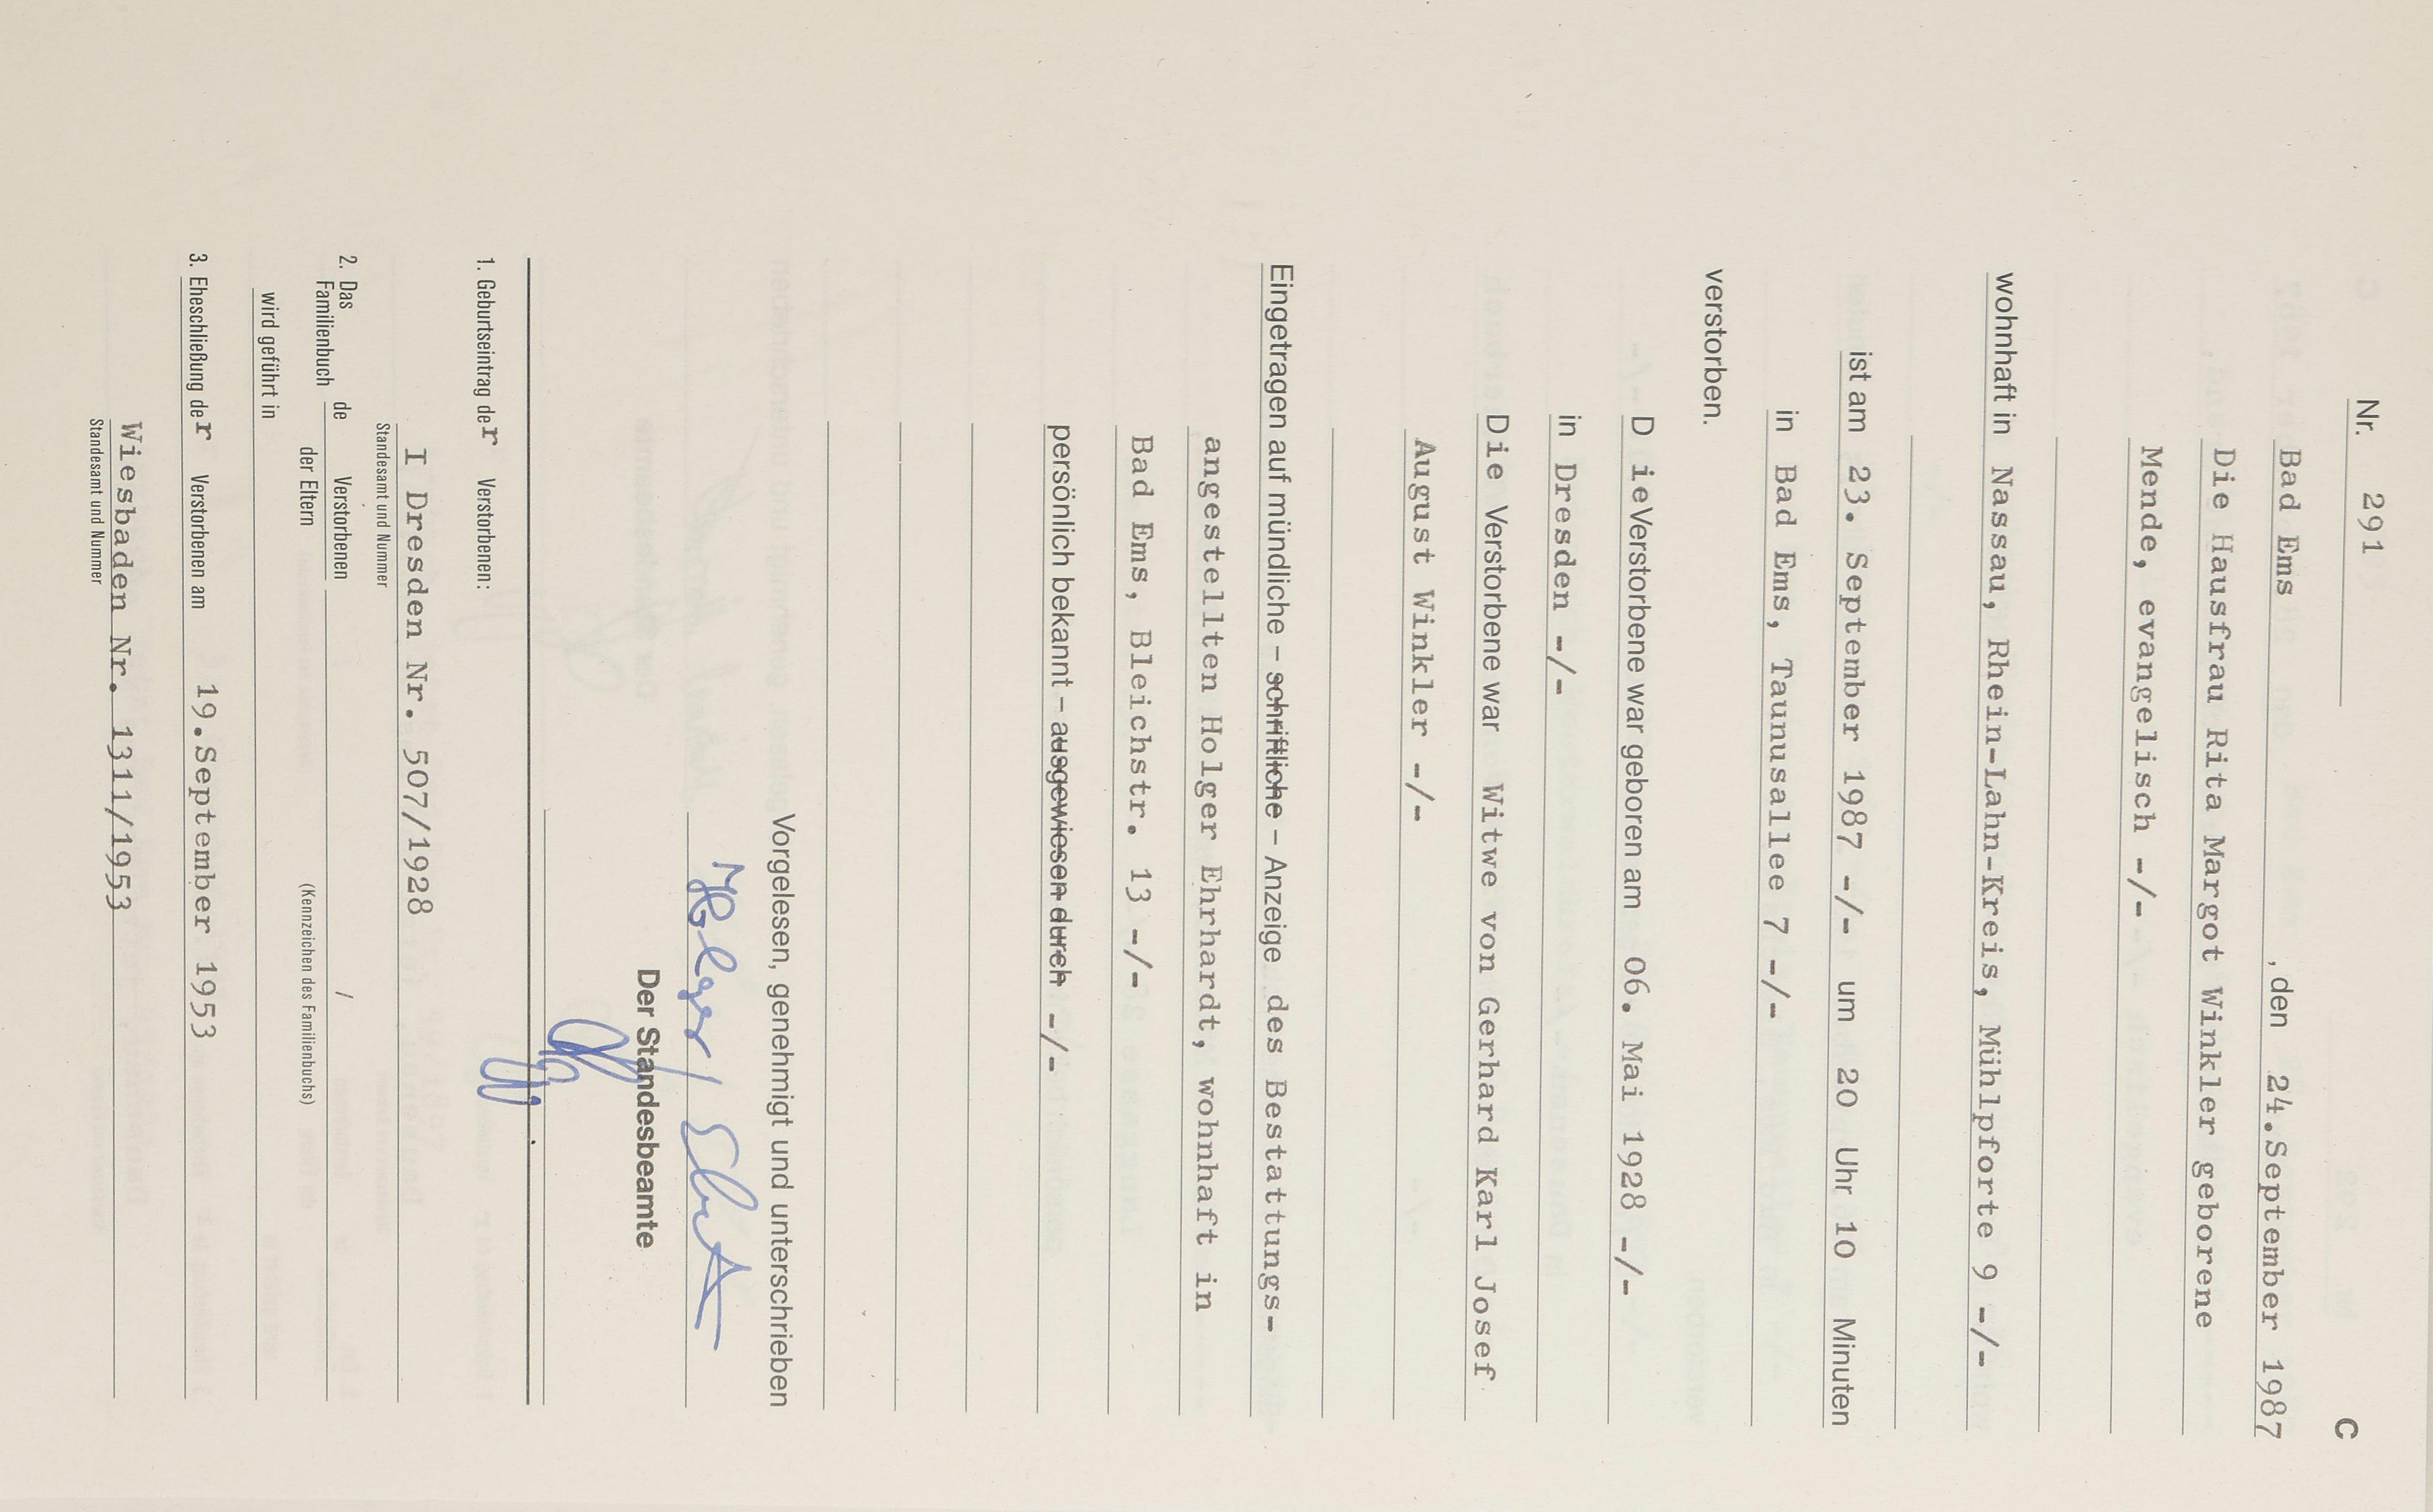 C
Nr. 291
Bad Ems , den 24.September 1987
Die Hausfrau Rita Margot Winkler geborene
Mende, evangelisch -/-
wohnhaft in Nassau, Rhein-Lahn-Kreis, Mühlpforte 9 -/-
ist am 23. September 1987 -/- um 20 Uhr 10 Minuten
in Bad Ems, Taunusallee 7 -/-
verstorben.
D ie Verstorbene war geboren am 06. Mai 1928 -/-
in Dresden -/-
Die Verstorbene war Witwe von Gerhard Karl Josef
August Winkler -/-
Eingetragen auf mündliche – schriftliche – Anzeige des Bestattungs-
angestellten Holger Ehrhardt, wohnhaft in
Bad Ems, Bleichstr. 13 -/-
persönlich bekannt – ausgewiesen durch -/-
Vorgelesen, genehmigt und unterschrieben
Holger
Der Standesbeamte
1. Geburtseintrag der Verstorbenen:
I Dresden Nr. 507/1928
Standesamt und Nummer
2. Das Familienbuch de Verstorbenen /
der Eltern (Kennzeichen des Familienbuchs)
wird geführt in
3. Eheschließung der Verstorbenen am 19.September 1953
Wiesbaden Nr. 1311/1953
Standesamt und Nummer